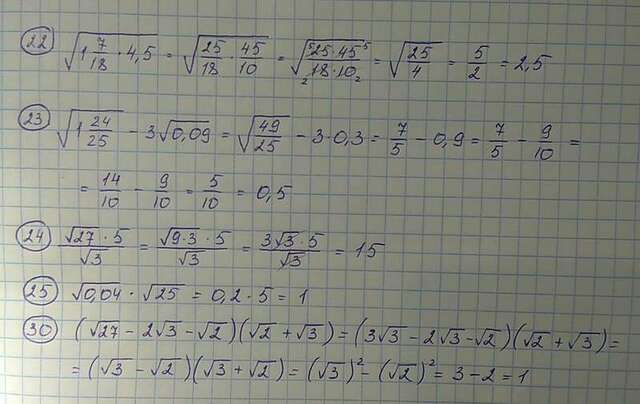 22 √(1 7/18 · 4,5) = √(25/18 · 45/10) = √(25·45/18·10) 5 5 2 2 = √(25/4) = 5/2 = 2,5
23 √(1 24/25) − 3√0,09 = √(49/25) − 3·0,3 = 7/5 − 0,9 = 7/5 − 9/10 =
= 14/10 − 9/10 = 5/10 = 0,5
24 √27 · 5/√3 = √9·3 · 5/√3 = 3√3 · 5/√3 = 15
25 √0,04 · √25 = 0,2 · 5 = 1
30 (√27 − 2√3 − √2)(√2 + √3) = (3√3 − 2√3 − √2)(√2 + √3) =
= (√3 − √2)(√3 + √2) = (√3)² − (√2)² = 3 − 2 = 1